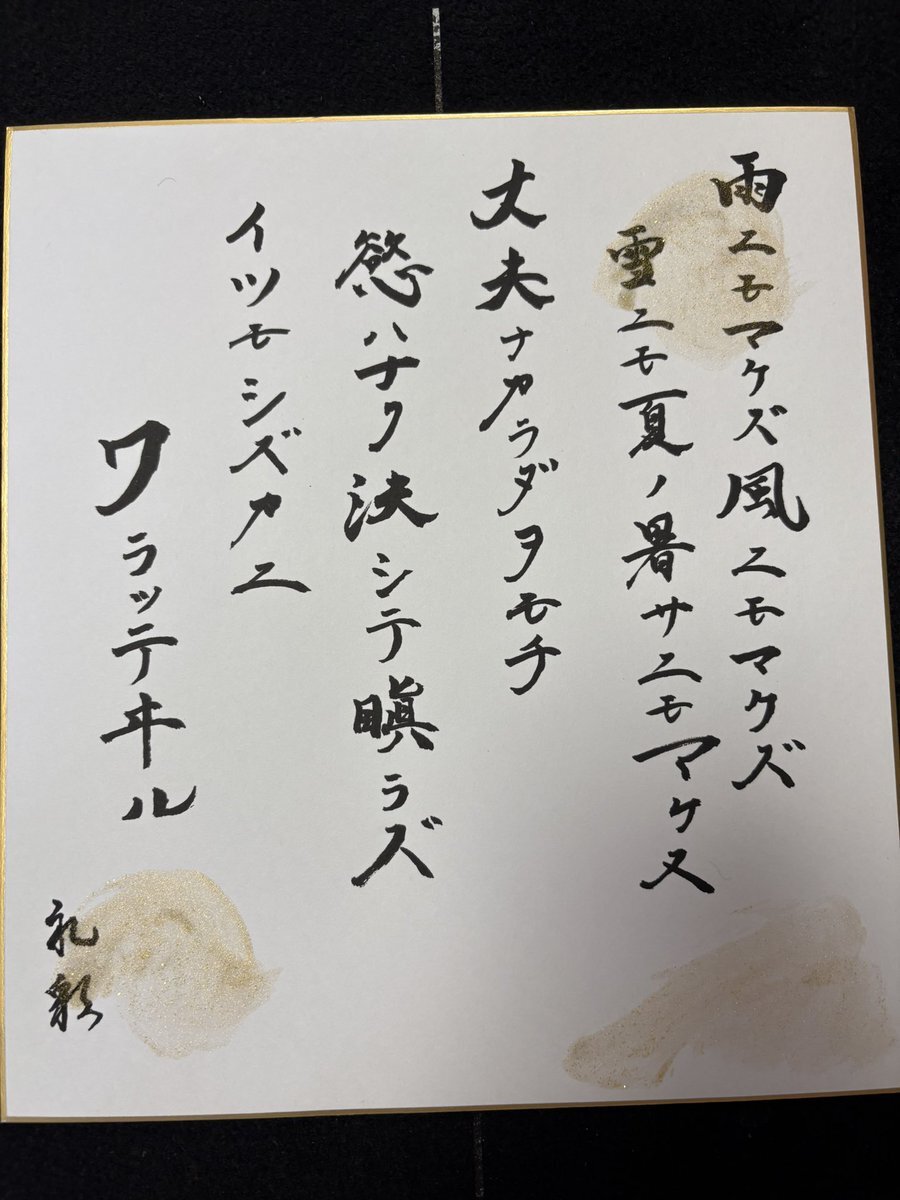 雨ニモマケズ風ニモマケズ
雪ニモ夏ノ暑サニモマケヌ
丈夫ナカラダヲモチ
慾ハナク決シテ瞋ラズ
イツモシズカニ
ワラッテヰル
礼彩